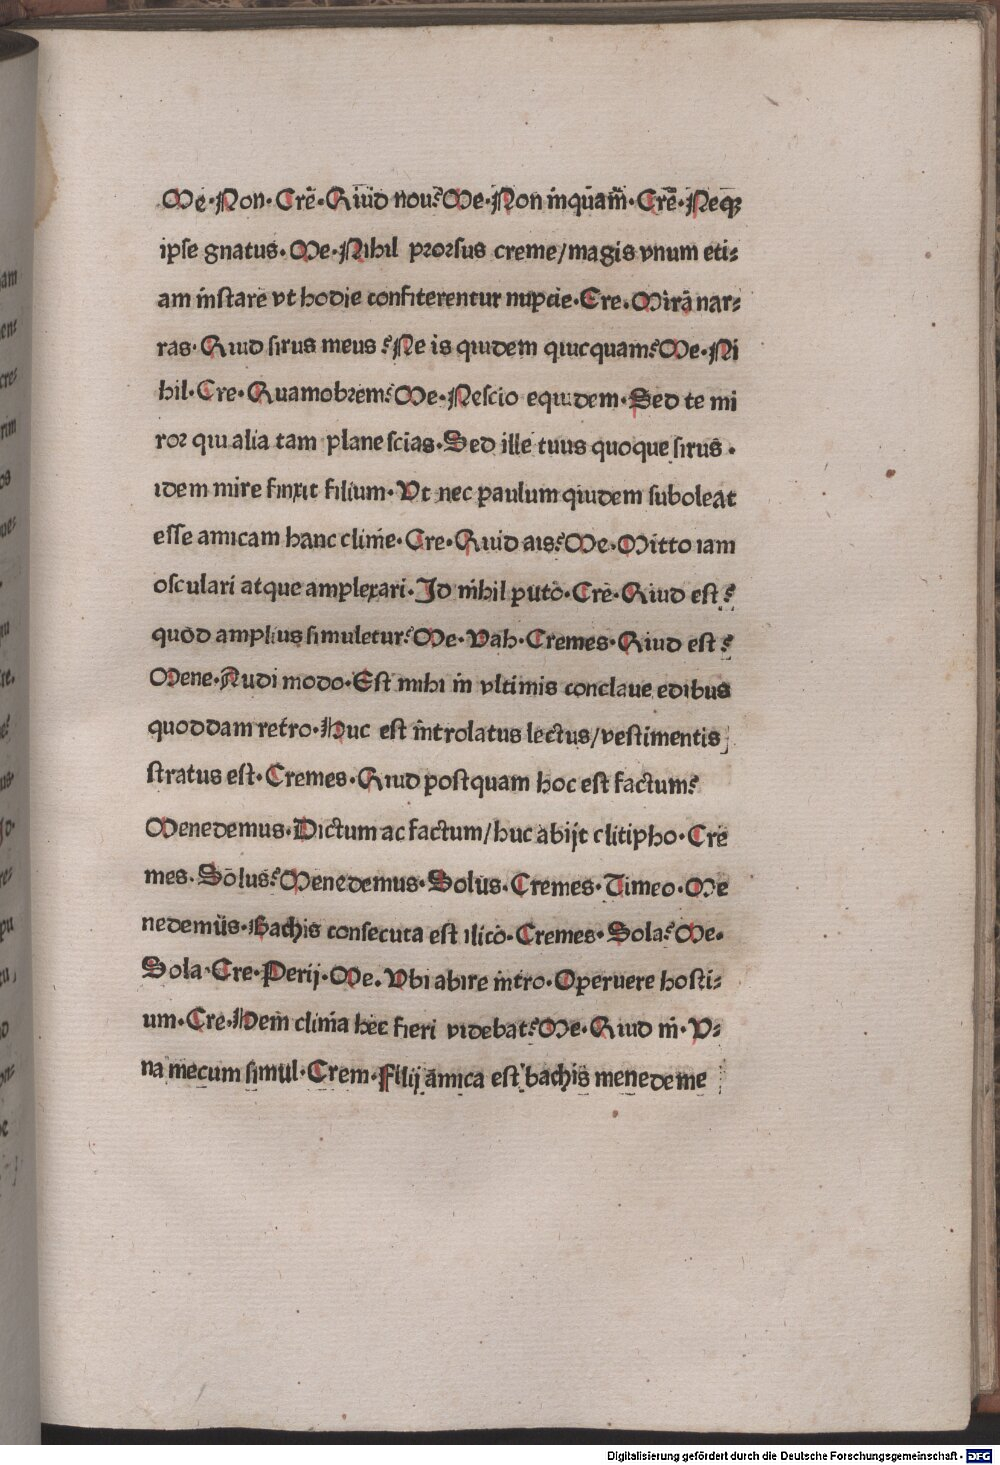 Me·Non·Cre·Quid noui?Me·Non inquam·Cre·Neqꝫ
ipse gnatus·Me·Nihil prorsus creme/magis vnum eti⸗
am instare vt hodie confiterentur nupcie·Cre·Mirā nar⸗
ras·Quid sirus meus?Ne is quidem quicquam?Me·Ni
hil·Cre·Quamobrem?Me·Nescio equidem·Sed te mi
ror qui alia tam plane scias·Sed ille tuus quoque sirus·
idem mire finxit filium·Vt nec paulum quidem suboleat
esse amicam hanc clinie·Cre·Quid ais?Me·Mitto iam
osculari atque amplexari·Id nihil puto·Cre·Quid est?
quod amplius simuletur?Me·Vah·Cremes·Quid est?
Mene·Audi modo·Est mihi in vltimis conclaue edibus
quoddam retro·Huc est introlatus lectus/vestimentis
stratus est·Cremes·Quid postquam hoc est factum?
Menedemus·Dictum ac factum/huc abijt clitipho·Cre
mes·Solus?Menedemus·Solus·Cremes·Timeo·Me
nedemus·Bachis consecuta est ilico·Cremes·Sola?Me·
Sola·Cre·Perij·Me·Vbi abire intro·Operuere hosti⸗
um·Cre·Hem clinia hec fieri videbat?Me·Quid ni·V⸗
na mecum simul·Crem·Filij amica est bachis menedeme
Digitalisierung gefördert durch die Deutsche Forschungsgemeinschaft · DFG